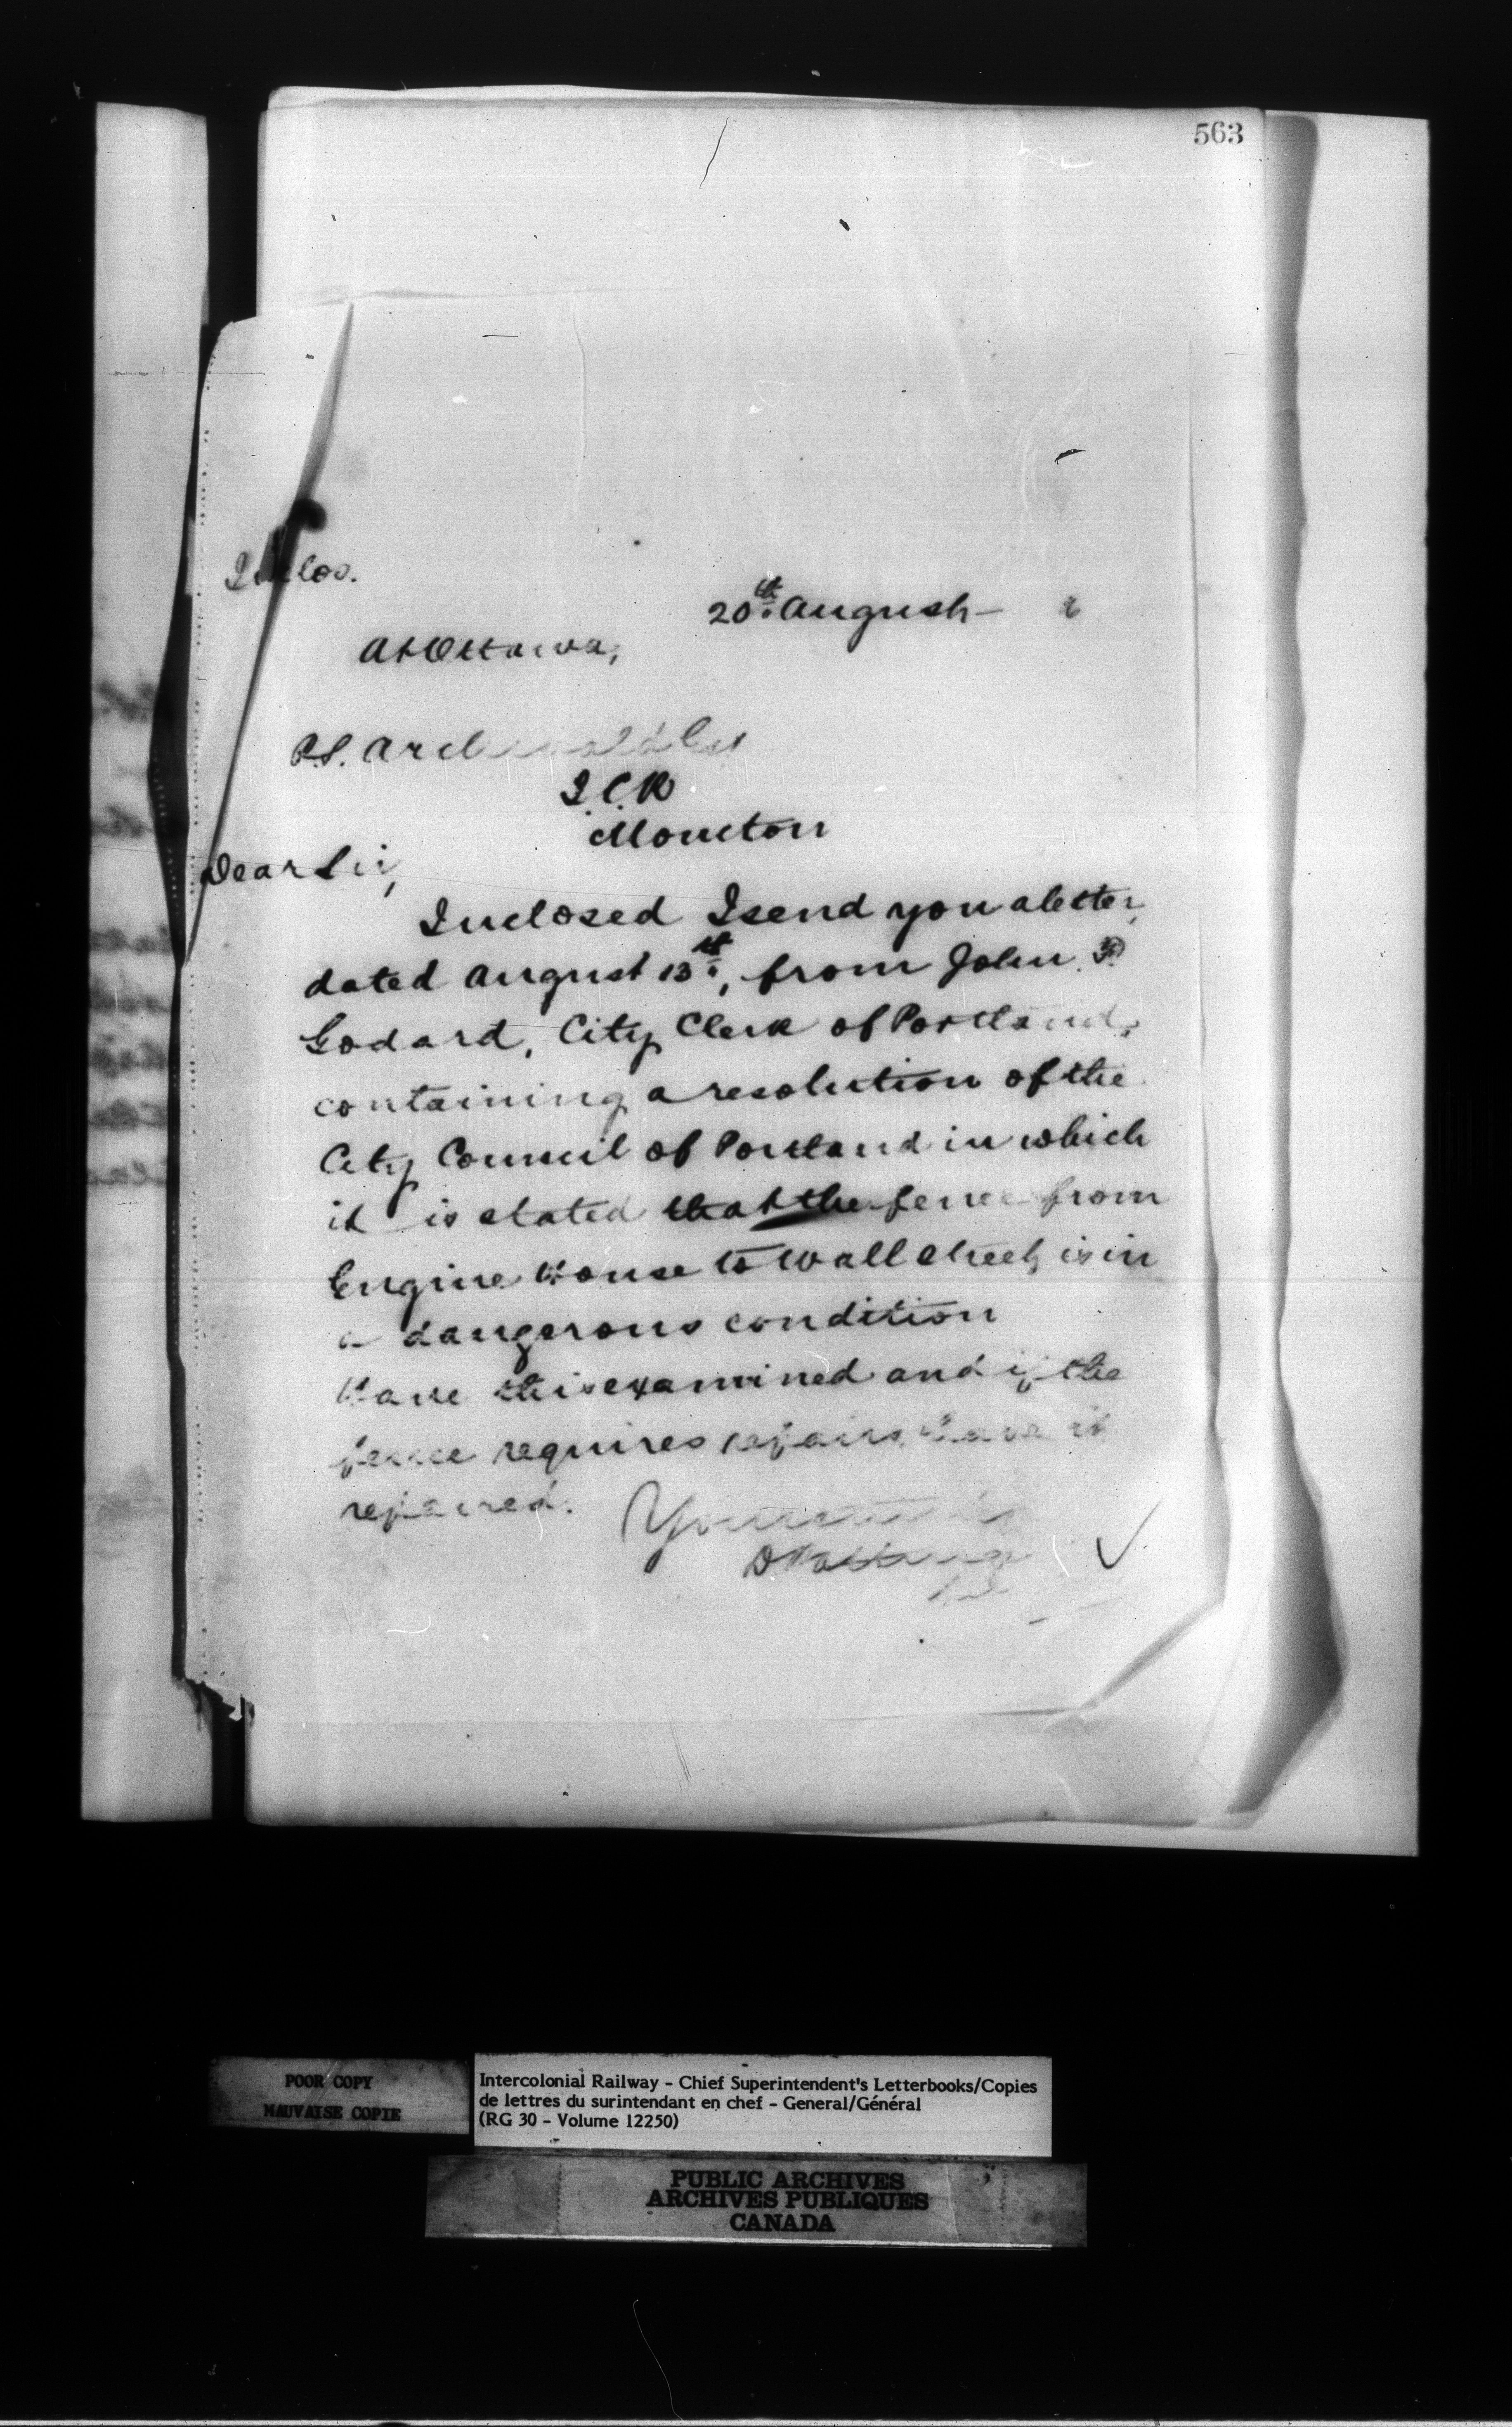 563
Inclos.
20th August
At Ottawa,
P.S. Archibald Esq
I.C.R
Moncton
Dear Sir,
Inclosed I send you a letter,
dated August 13th, from John
Godard, City Clerk of Portland,
containing a resolution of the
City Council of Portland in which
it is stated that the fence from
Engine House to Wall Street, is in
a dangerous condition
Have this examined and if the
fence requires repairs, have it
repaired.
Yours
D Pottinger
POOR COPY
MAUVAISE COPIE
Intercolonial Railway - Chief Superintendent's Letterbooks/Copies
de lettres du surintendant en chef - General/Général
(RG 30 - Volume 12250)
PUBLIC ARCHIVES
ARCHIVES PUBLIQUES
CANADA